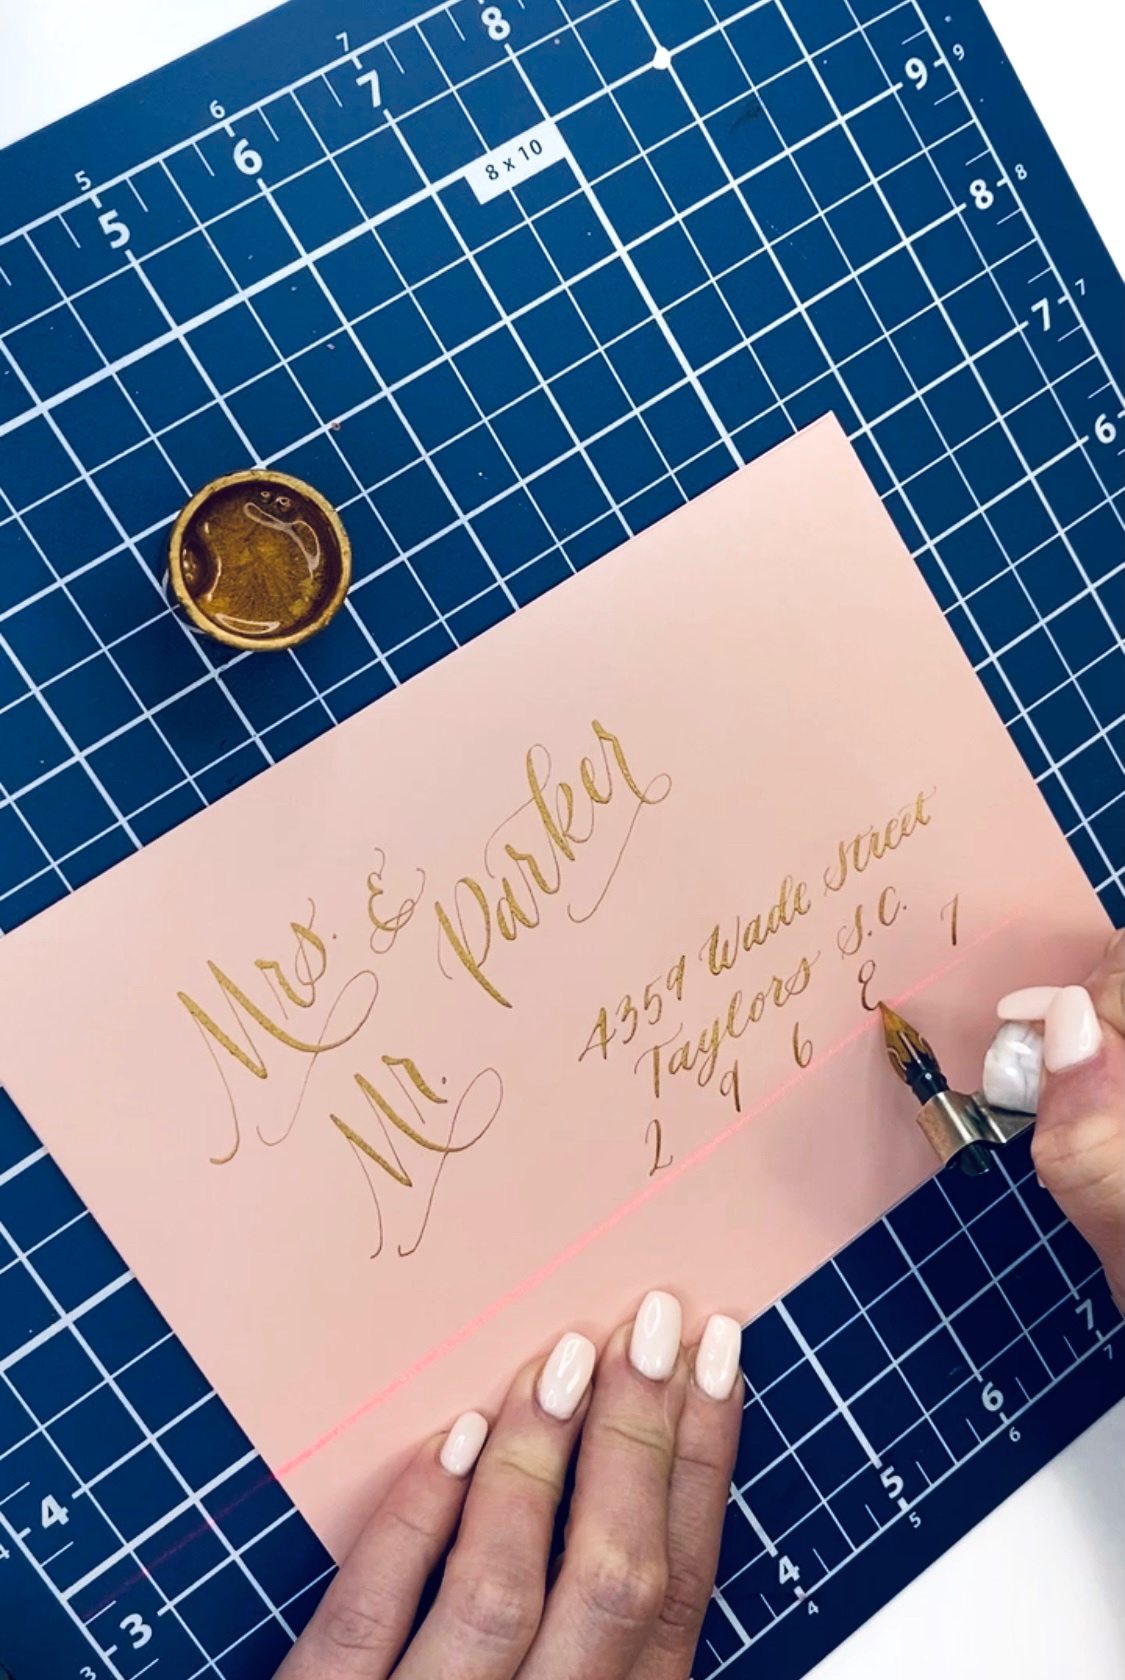 Mrs. &
Mr. Parker
4359 Wade Street
Taylors S.C.
2 9 6 8 7
8 x 10
5 6 7 8
5 6 7
9 8 7 6
9 8 7
4 3
4 3
4 5 6 7
4 5 6 7